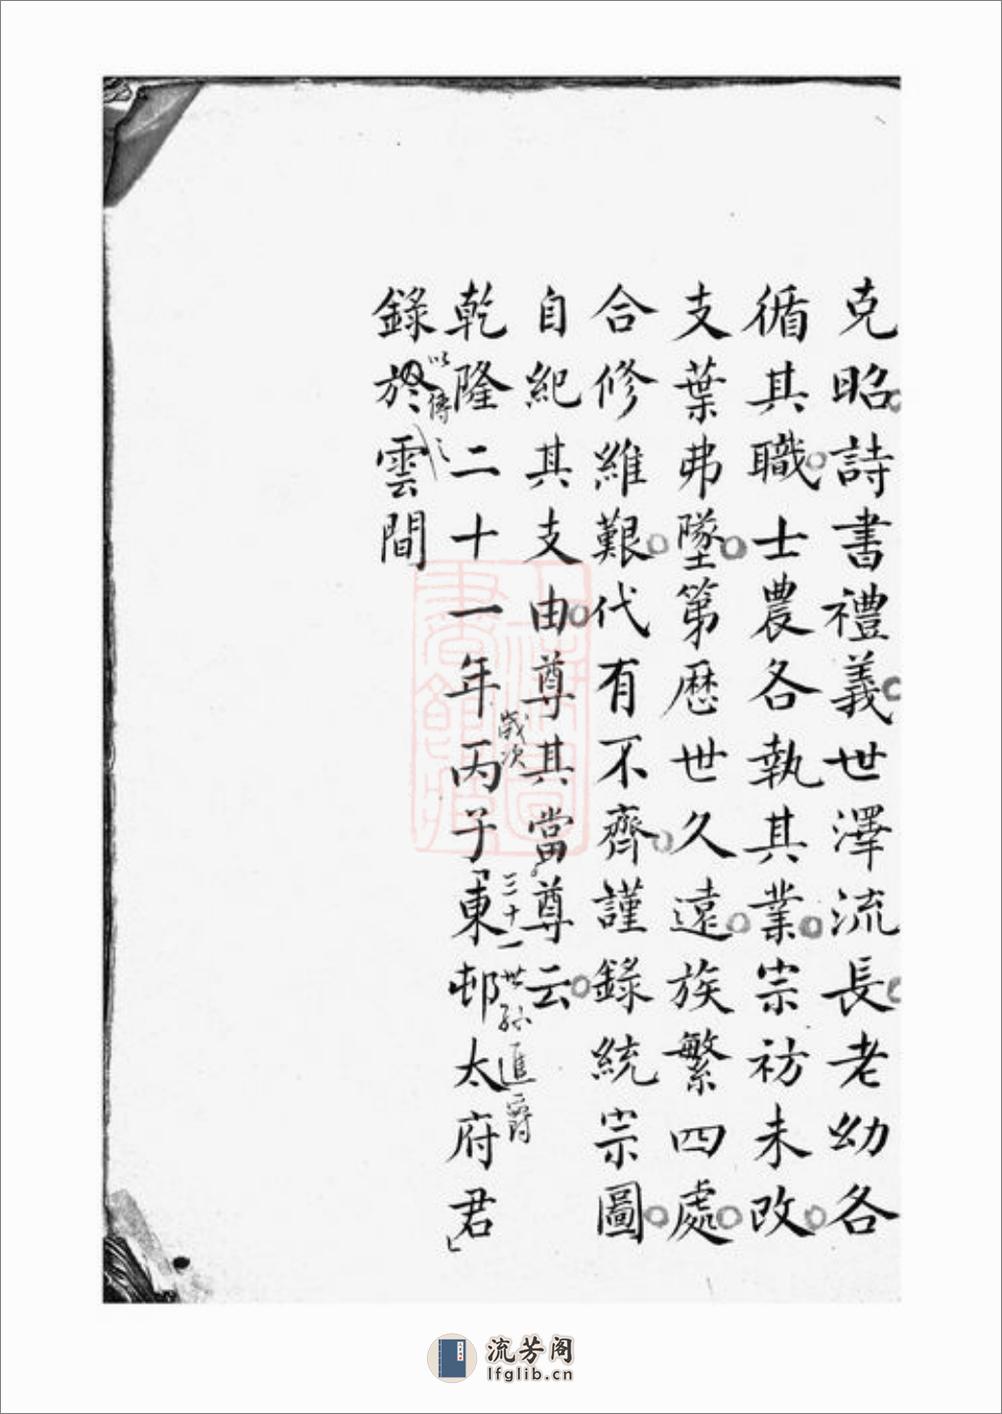 克昭詩書禮義世澤流長老幼各
循其職士農各執其業宗祊未改
支葉弗墜第歷世久遠族繁四處
合修維艱代有不齊謹錄統宗圖
自紀其支由尊其當尊云
歲次
三十一世孫進爵
乾隆二十一年丙子東邨太府君
以傳
錄於雲間
流芳阁
lfglib.cn